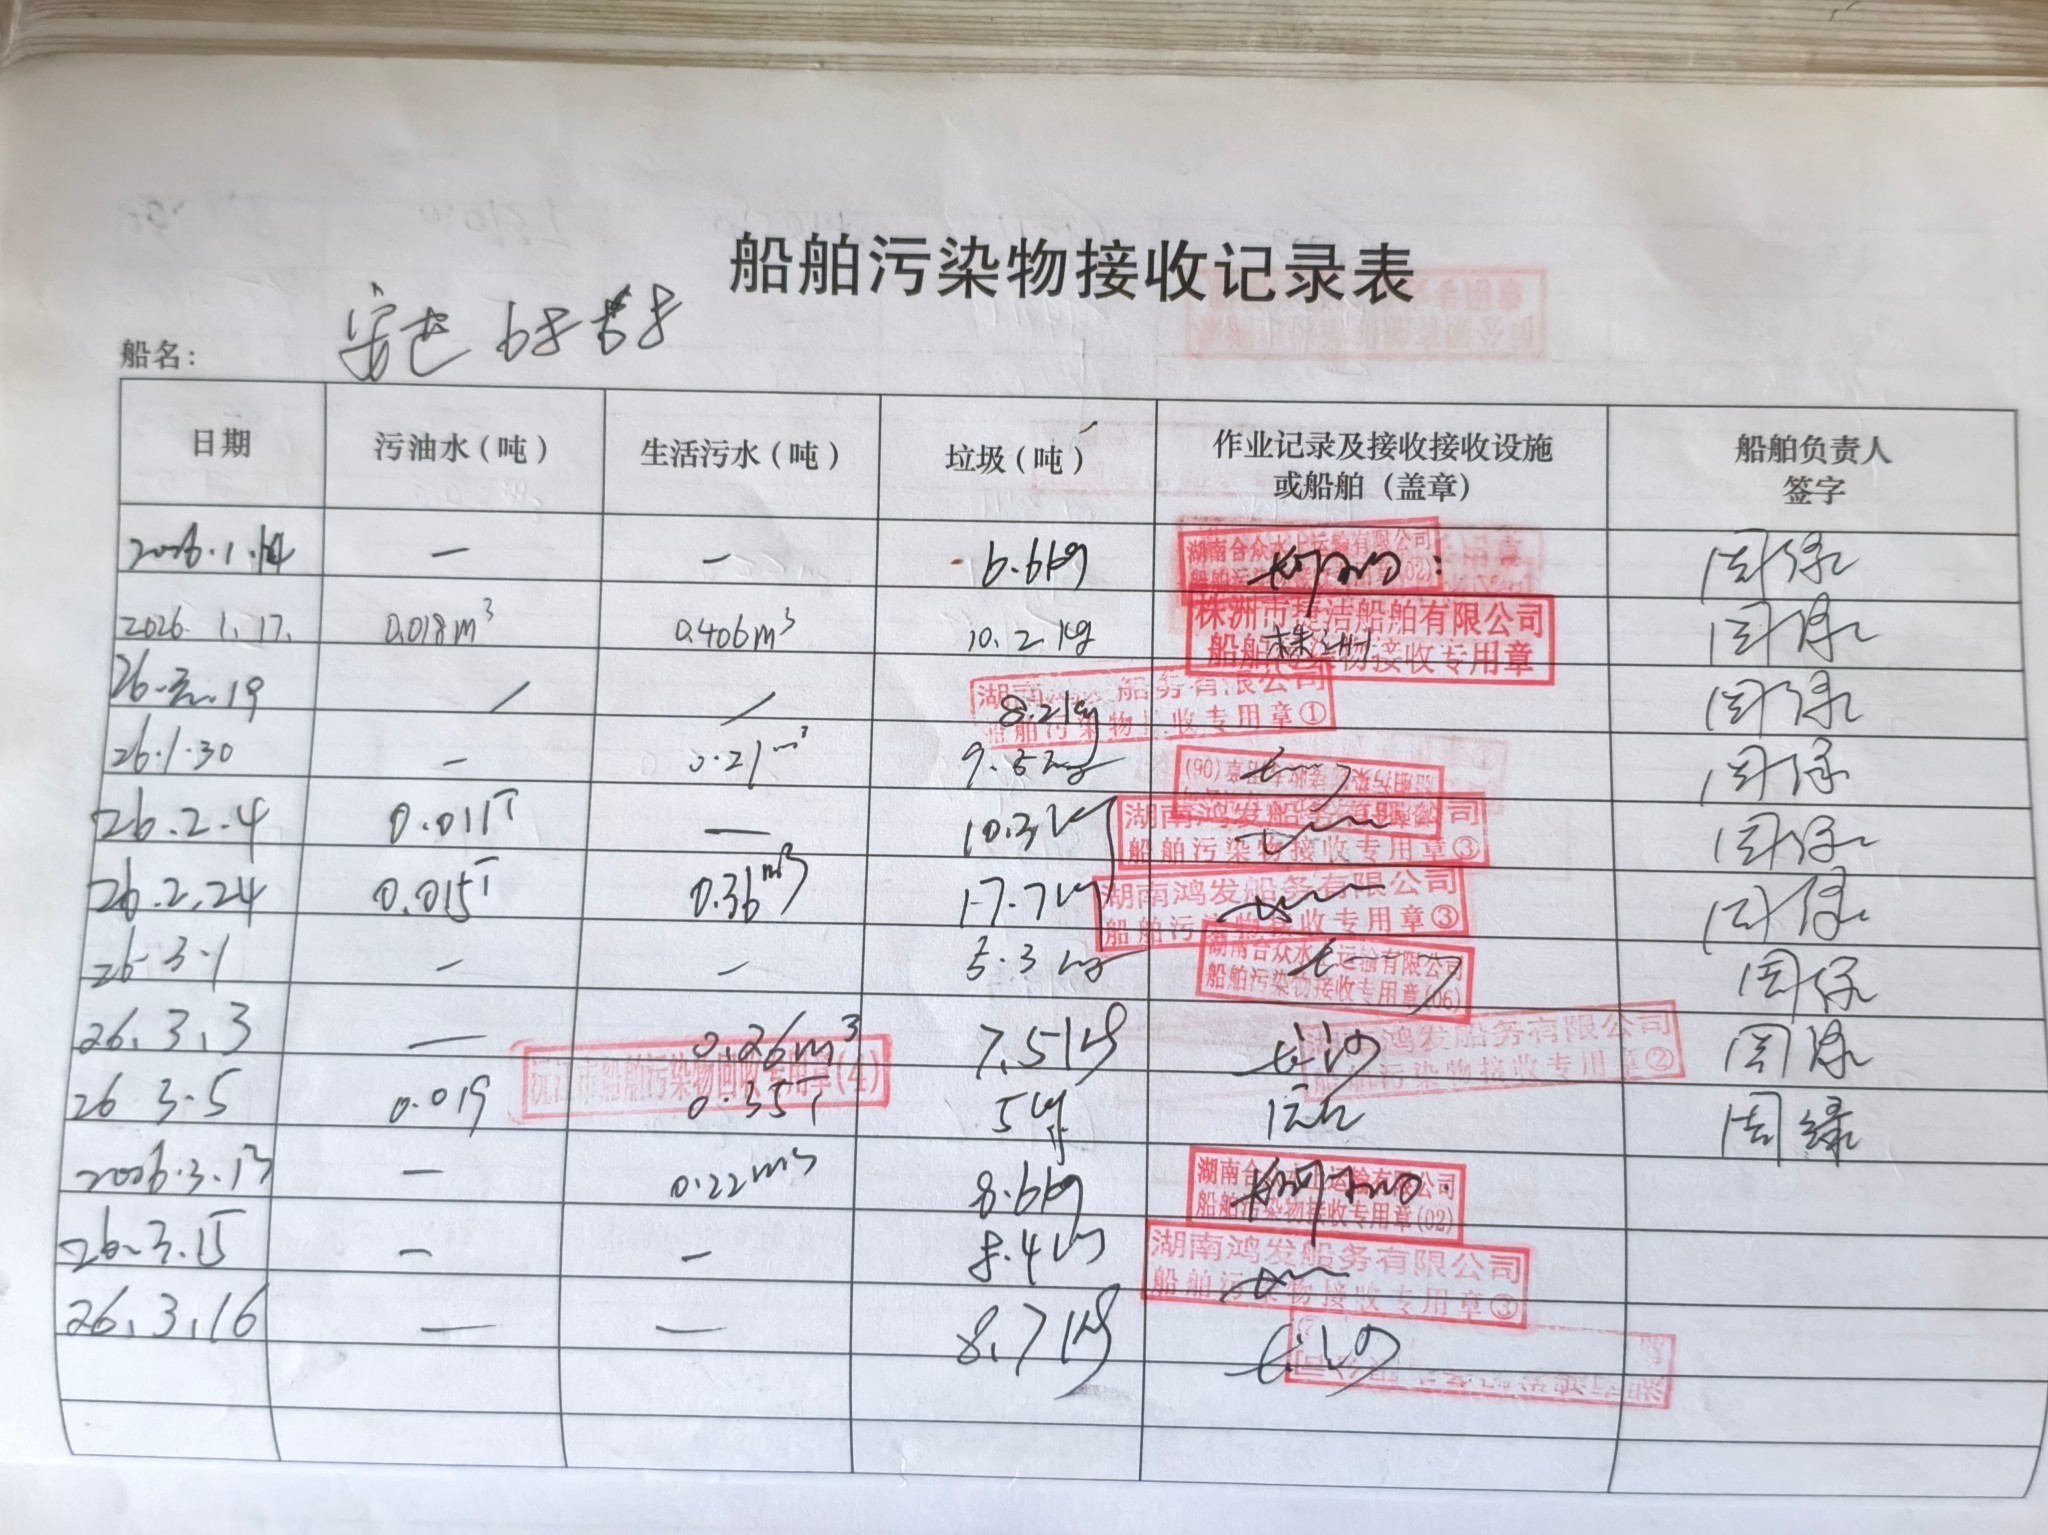 船舶污染物接收记录表
船名：
日期 污油水（吨） 生活污水（吨） 垃圾（吨） 作业记录及接收接收设施或船舶（盖章） 船舶负责人签字
2026.1.14 — — 6.6kg 湖南合众水上运输有限公司 周绿
2026.1.17. 0.018m³ 0.406m³ 10.2kg 株洲市捷洁船舶有限公司 船舶污染物接收专用章 株洲 周绿
26.1.19 / / 8.2kg 船务有限公司 船舶污染物接收专用章① 周绿
26.1.30 — 0.21m³ 周绿
26.2.4 0.011T — 湖南鸿发船务有限公司 船舶污染物接收专用章③ 周绿
26.2.24 0.015T 0.36m³ 17.7kg 湖南鸿发船务有限公司 船舶污染物接收专用章③ 周绿
26.3.1 — — 5.3kg 湖南合众水上运输有限公司 船舶污染物接收专用章(06) 周绿
26.3.3 — 0.26m³ 7.5kg 长沙 湖南鸿发船务有限公司 船舶污染物接收专用章② 周绿
26 3.5 0.019 0.35T 5kg 沅江 沅江市船舶污染物回收专用章(4) 周绿
2026.3.13 — 0.22m³ 8.6kg 湖南合众水上运输有限公司 船舶污染物接收专用章(02)
26.3.15 — — 8.4kg 湖南鸿发船务有限公司 船舶污染物接收专用章③
26.3.16 — — 8.7kg 长沙